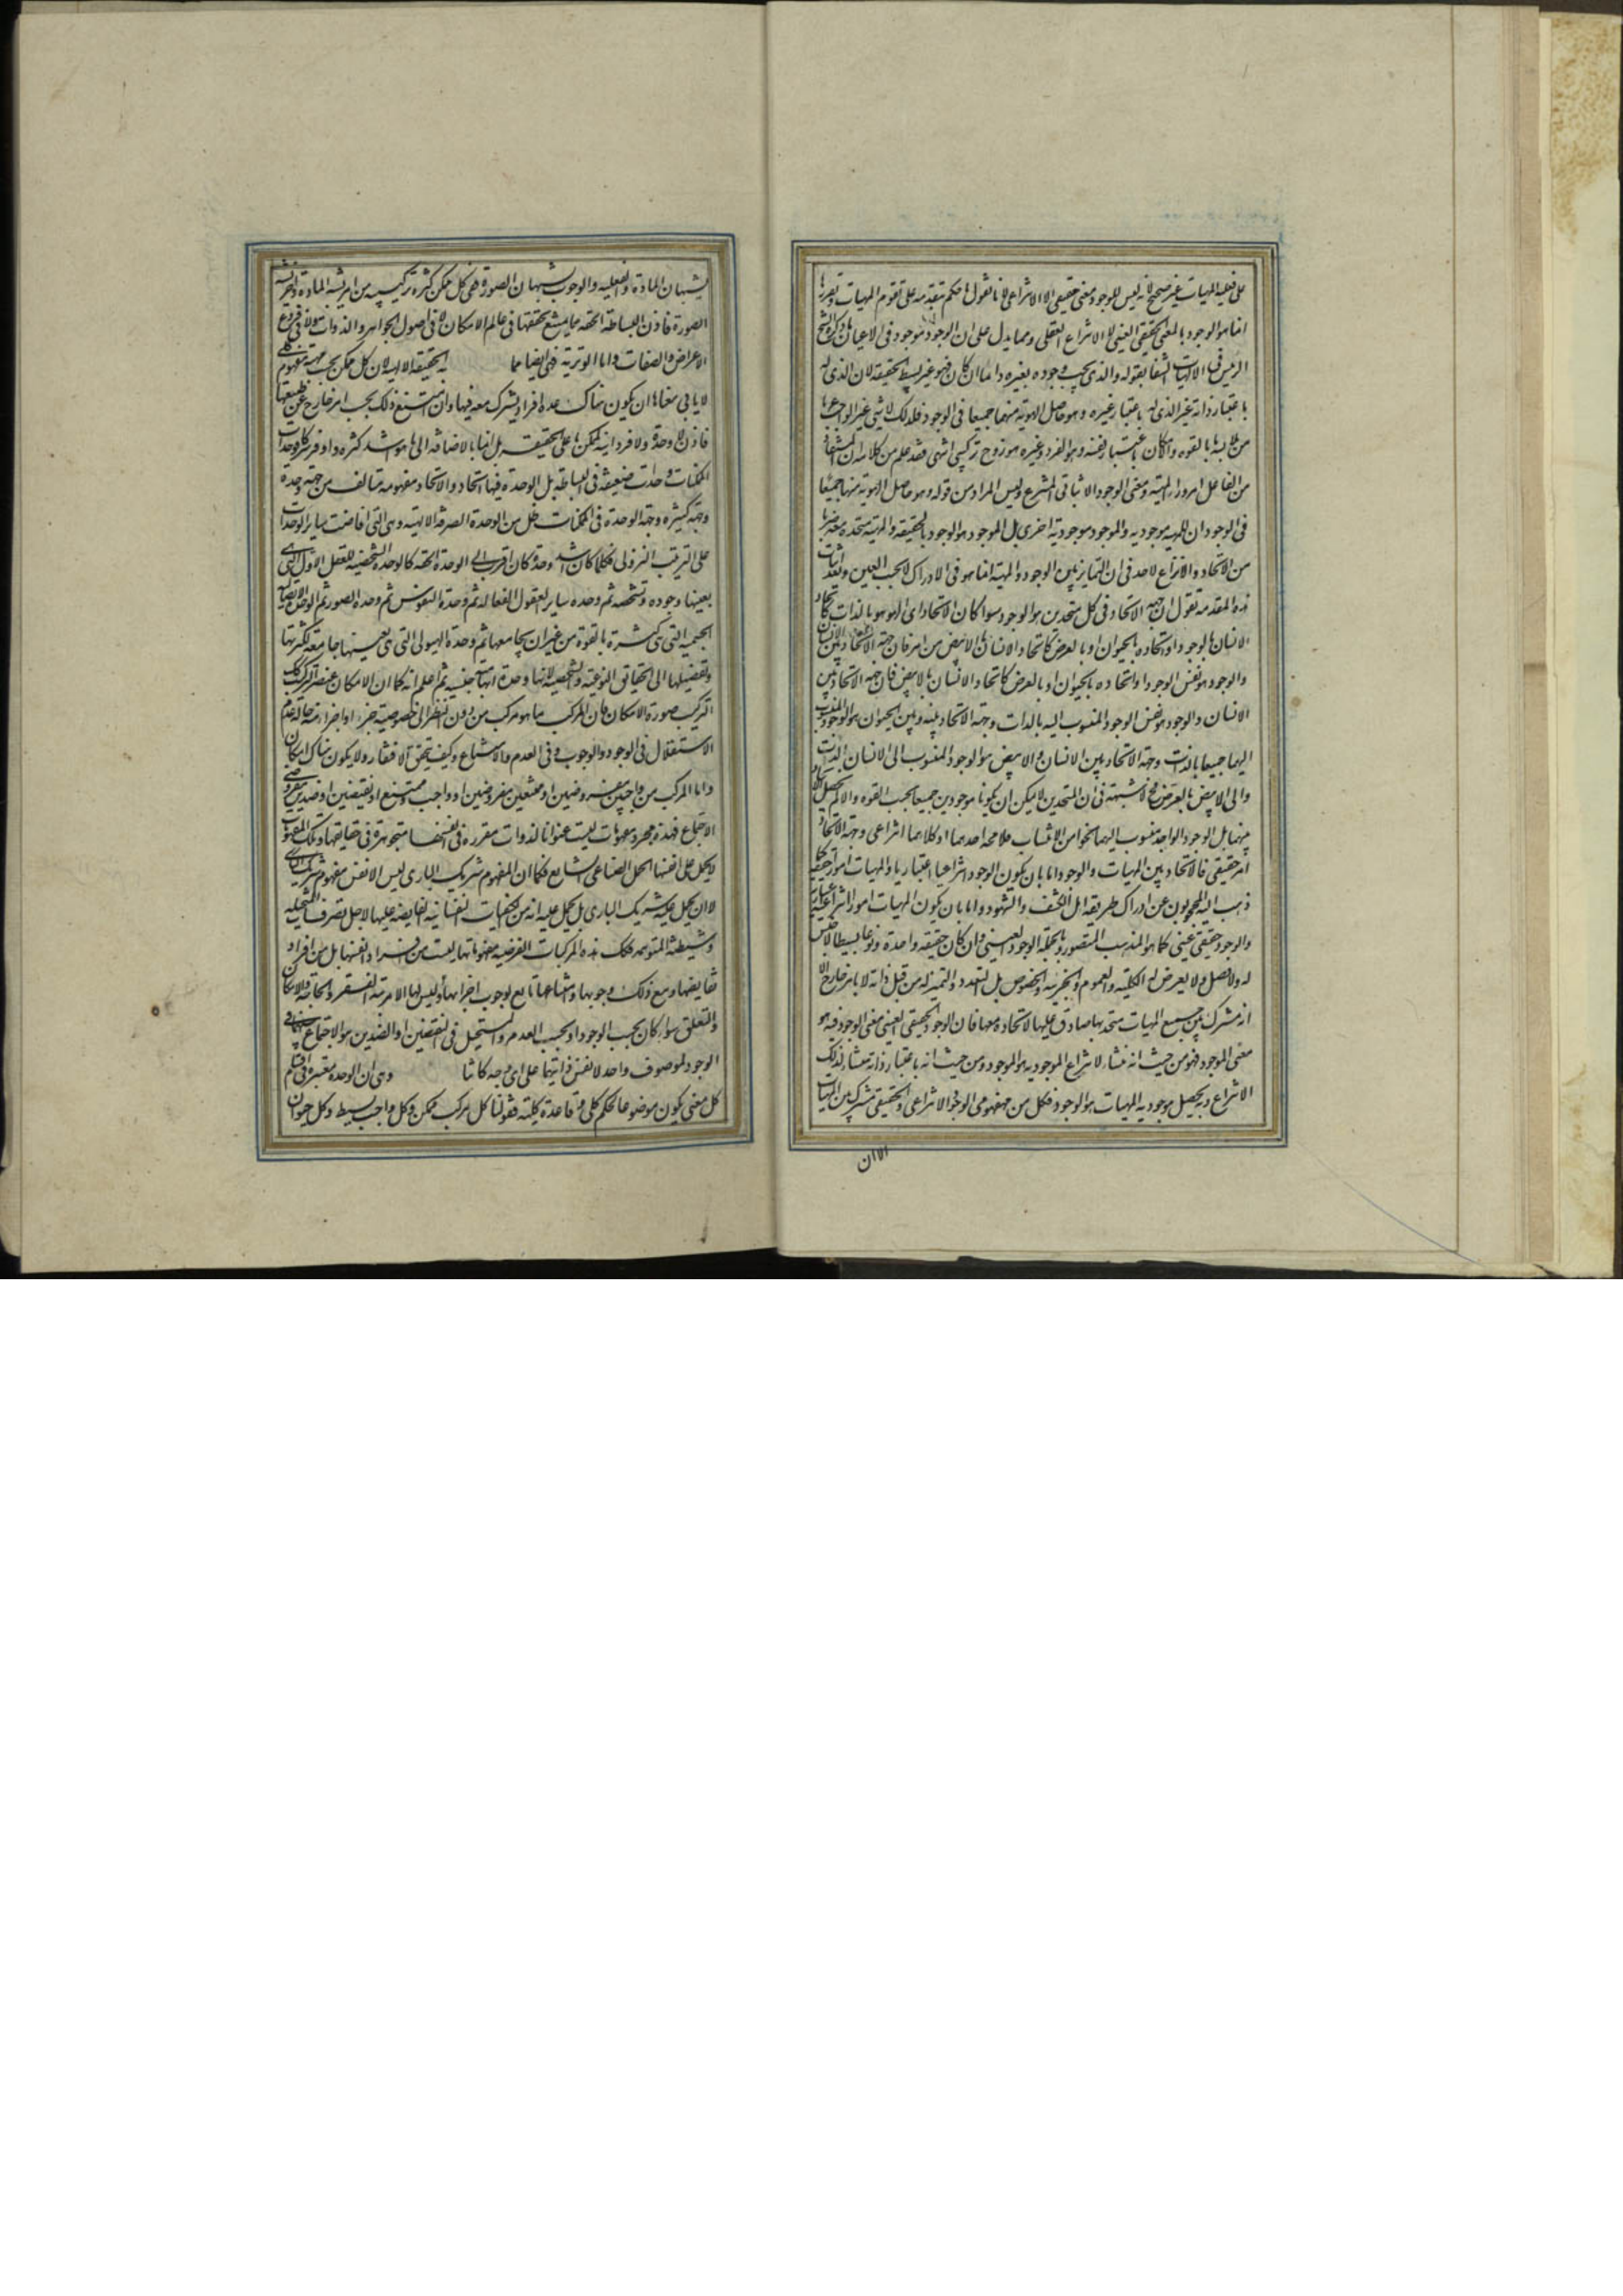 على فعلية المهيات غير صحيح لانه ليس للوجود معنى حقيقى الا الانتزاعى لانا نقول ما حكم بتقدمه على تقوم المهيات وتقررها
انما هو الوجود بالمعنى الحقيقى العينى لا الانتزاع العقلى ومما يدل على ان الوجود موجود فى الاعيان ما ذكره الشيخ
الرئيس فى الالهيات الشفا بقوله والذى يجب وجوده بغيره دائما ان كان فهو غير بسيط الحقيقه لان الذى له
باعتبار ذاته غير الذى له باعتبار غيره وهو حاصل الهويه منهما جميعا فى الوجود فلذلك لا شئ غير الواجب عرى
من ملابسة ما بالقوه والامكان باعتبار نفسه وهو الفرد وغيره هو زوج تركيبى انتهى فقد علم من كلامه ان المستفاد
من الفاعل امر وراء المهية ومعنى الوجود الاثباتى المنتزع وليس المراد من قوله وهو حاصل الهويه منهما جميعا
فى الوجود ان للمهيه موجوديه وللوجود موجودية اخرى بل الموجود هو الوجود بالحقيقه والمهية متحده معه ضربا
من الاتحاد ولا نزاع لاحد فى ان التمايز بين الوجود والمهية انما هو فى الادراك لا بحسب العين وبعد اثبات
هذه المقدمه نقول ان جهه الاتحاد فى كل متحدين هو الوجود سوا كان الاتحاد اى الهو هو بالذات كاتحاد
الانسان بالوجود او اتحاده بالحيوان او بالعرض كاتحاد الانسان بالابيض من امر فان جهة الاتحاد بين الانسان
والوجود هو نفس الوجود او اتحاده بالحيوان او بالعرض كاتحاد الانسان بالابيض فان جهه الاتحاد بين
الانسان والوجود هو نفس الوجود المنسوب اليه بالذات وجهة الاتحاد بينه وبين الحيوان هو الوجود المنسوب
اليهما جميعا بالذات وجهة الاتحاد بين الانسان والابيض هو الوجود المنسوب الى الانسان بالذات
والى الابيض بالعرض فح لا شبهة فى ان المتحدين لا يمكن ان يكونا موجودين جميعا بحسب القوه والا لم يحصل الاتحاد
بينهما بل الوجود الواحد منسوب اليهما نحوا من الانتساب فلا محه احدهما او كلاهما انتزاعى وجهة الاتحاد
امر حقيقى فالاتحاد بين المهيات والوجود اما بان يكون الوجود انتزاعيا اعتباريا والمهيات امور حقيقيه كما
ذهب اليه المحجوبون عن ادراك طريقه اهل الكشف والشهود واما بان يكون المهيات امورا انتزاعية اعتبارية
والوجود حقيقى عينى كما هو المذهب المنصور وبالجملة الوجود العينى وان كان حقيقه واحدة ونوعا بسيطا لا جنس
له ولا فصل ولا يعرض له الكلية والعموم والجزئيه والخصوص بل التعدد والتميز له من قبل ذاته لا بامر خارج الا
انه مشترك بين جميع المهيات متحد بها صادق عليها لاتحاده معها فان الوجود الحقيقى العينى معنى الوجود فيه هو
معنى الموجود فهو من حيث انه منشأ لانتزاع الموجوديه هو الموجود ومن حيث انه باعتبار ذاته منشأ لذلك
الانتزاع وبه يحصل موجوديه المهيات هو الوجود فكل من مفهومى الوجود الانتزاعى والحقيقى مشترك بين المهيات
الا ان
يشبهان المادة والفعليه والوجوب يشبهان الصورة ففى كل ممكن كثره تركيبيه من امر يشبه المادة واخر يشبه
الصورة فاذن البساطة الحقه مما يمتنع تحققها فى عالم الامكان لا فى اصول الجواهر والذوات ولا فى فروع
الاعراض والصفات واما الوترية فهى ايضا مما به الحقيقه الالهيه لان كل ممكن بحسب مهيته مفهوم كلى
لا يابى معناها ان يكون هناك عدة افراد يشترك معه فيها وان امتنع ذلك بحسب امر خارج عن طبيعتها
فاذن لا وحدة ولا فردانيه لممكن ما على الحقيقة بل انما بالاضافه الى ما هو اشد كثره واوفر شركا فوحدات
الممكنات وحدات ضعيفة فى البساطة بل الوحدة فيها اتحاد والاتحاد مفهومه متالف من جهة وحده
وجهة كثره وجهة الوحدة فى الممكنات ظل من الوحدة الصرفة الالهية وهى التى افاضت ساير الوحدات
على الترتيب النزولى فكلما كان اشد وحدة كان اقرب الى الوحدة الحقه كالوحده الشخصية للعقل الاول التى هى
بعينها وجوده وتشخصه ثم وحده ساير العقول الفعاله ثم وحدة النفوس ثم وحده الصور ثم الوحدة الاتصاليه
الجسميه التى هى كثرة بالقوة من غير ان يجامعها ثم وحدة الهيولى التى هى بعينها جامعه لكثرتها
وتفصيلها الى الحقايق النوعية والشخصية لانها وحدة ابهامية جنسيه ثم اعلم انه كما ان الامكان عنصر التركيب كذلك
التركيب صورة الامكان فان المركب بما هو مركب من دون النظر الى خصوصية جزء او اجزاء منه حاله عدم
الاستقلال فى الوجود والوجوب وفى العدم والامتناع وكيف يتحقق الافتقار ولا يكون هناك امكان
واما المركب من واجبين مفروضين او ممتنعين مفروضين او واجب وممتنع او نقيضين او ضدين مفروضى
الاجتماع فهذه مجرد مفهومات ليست عنوانا لذوات مقررة فى انفسها متجوهرة فى حقايقها وتلك المفهومات
لا يحمل على انفسها الحمل الصناعى الشايع فكما ان المفهوم شريك البارى ليس الا نفس مفهوم شريك البارى
لا ان يحمل عليه شريك البارى بل يحمل عليه انه من الكيفيات النفسانيه الفايضه عليها لاجل تصرفات المتخيله
وشيطنة المتوهمه فكذلك هذه المركبات الفرضيه مفهوماتها ليست من افراد انفسها بل من افراد
نقايضها ومع ذلك وجوبها وامتناعها تابع لوجوب اجزائها وليس لها الا مرتبة الفقر والحاجة والامكان
والتعلق سوا كان بحسب الوجود او بحسب العدم والمستحيل فى النقيضين او الضدين هو الاجتماع بينهما فى
الوجود لموصوف واحد لا نفس ذاتيهما على اى وجه كانتا وهى ان الوحده معتبره فى اقسام
كل معنى يكون موضوعا لحكم كلى وقاعدة كلية فقولنا كل مركب ممكن وكل واجب بسيط وكل حيوان